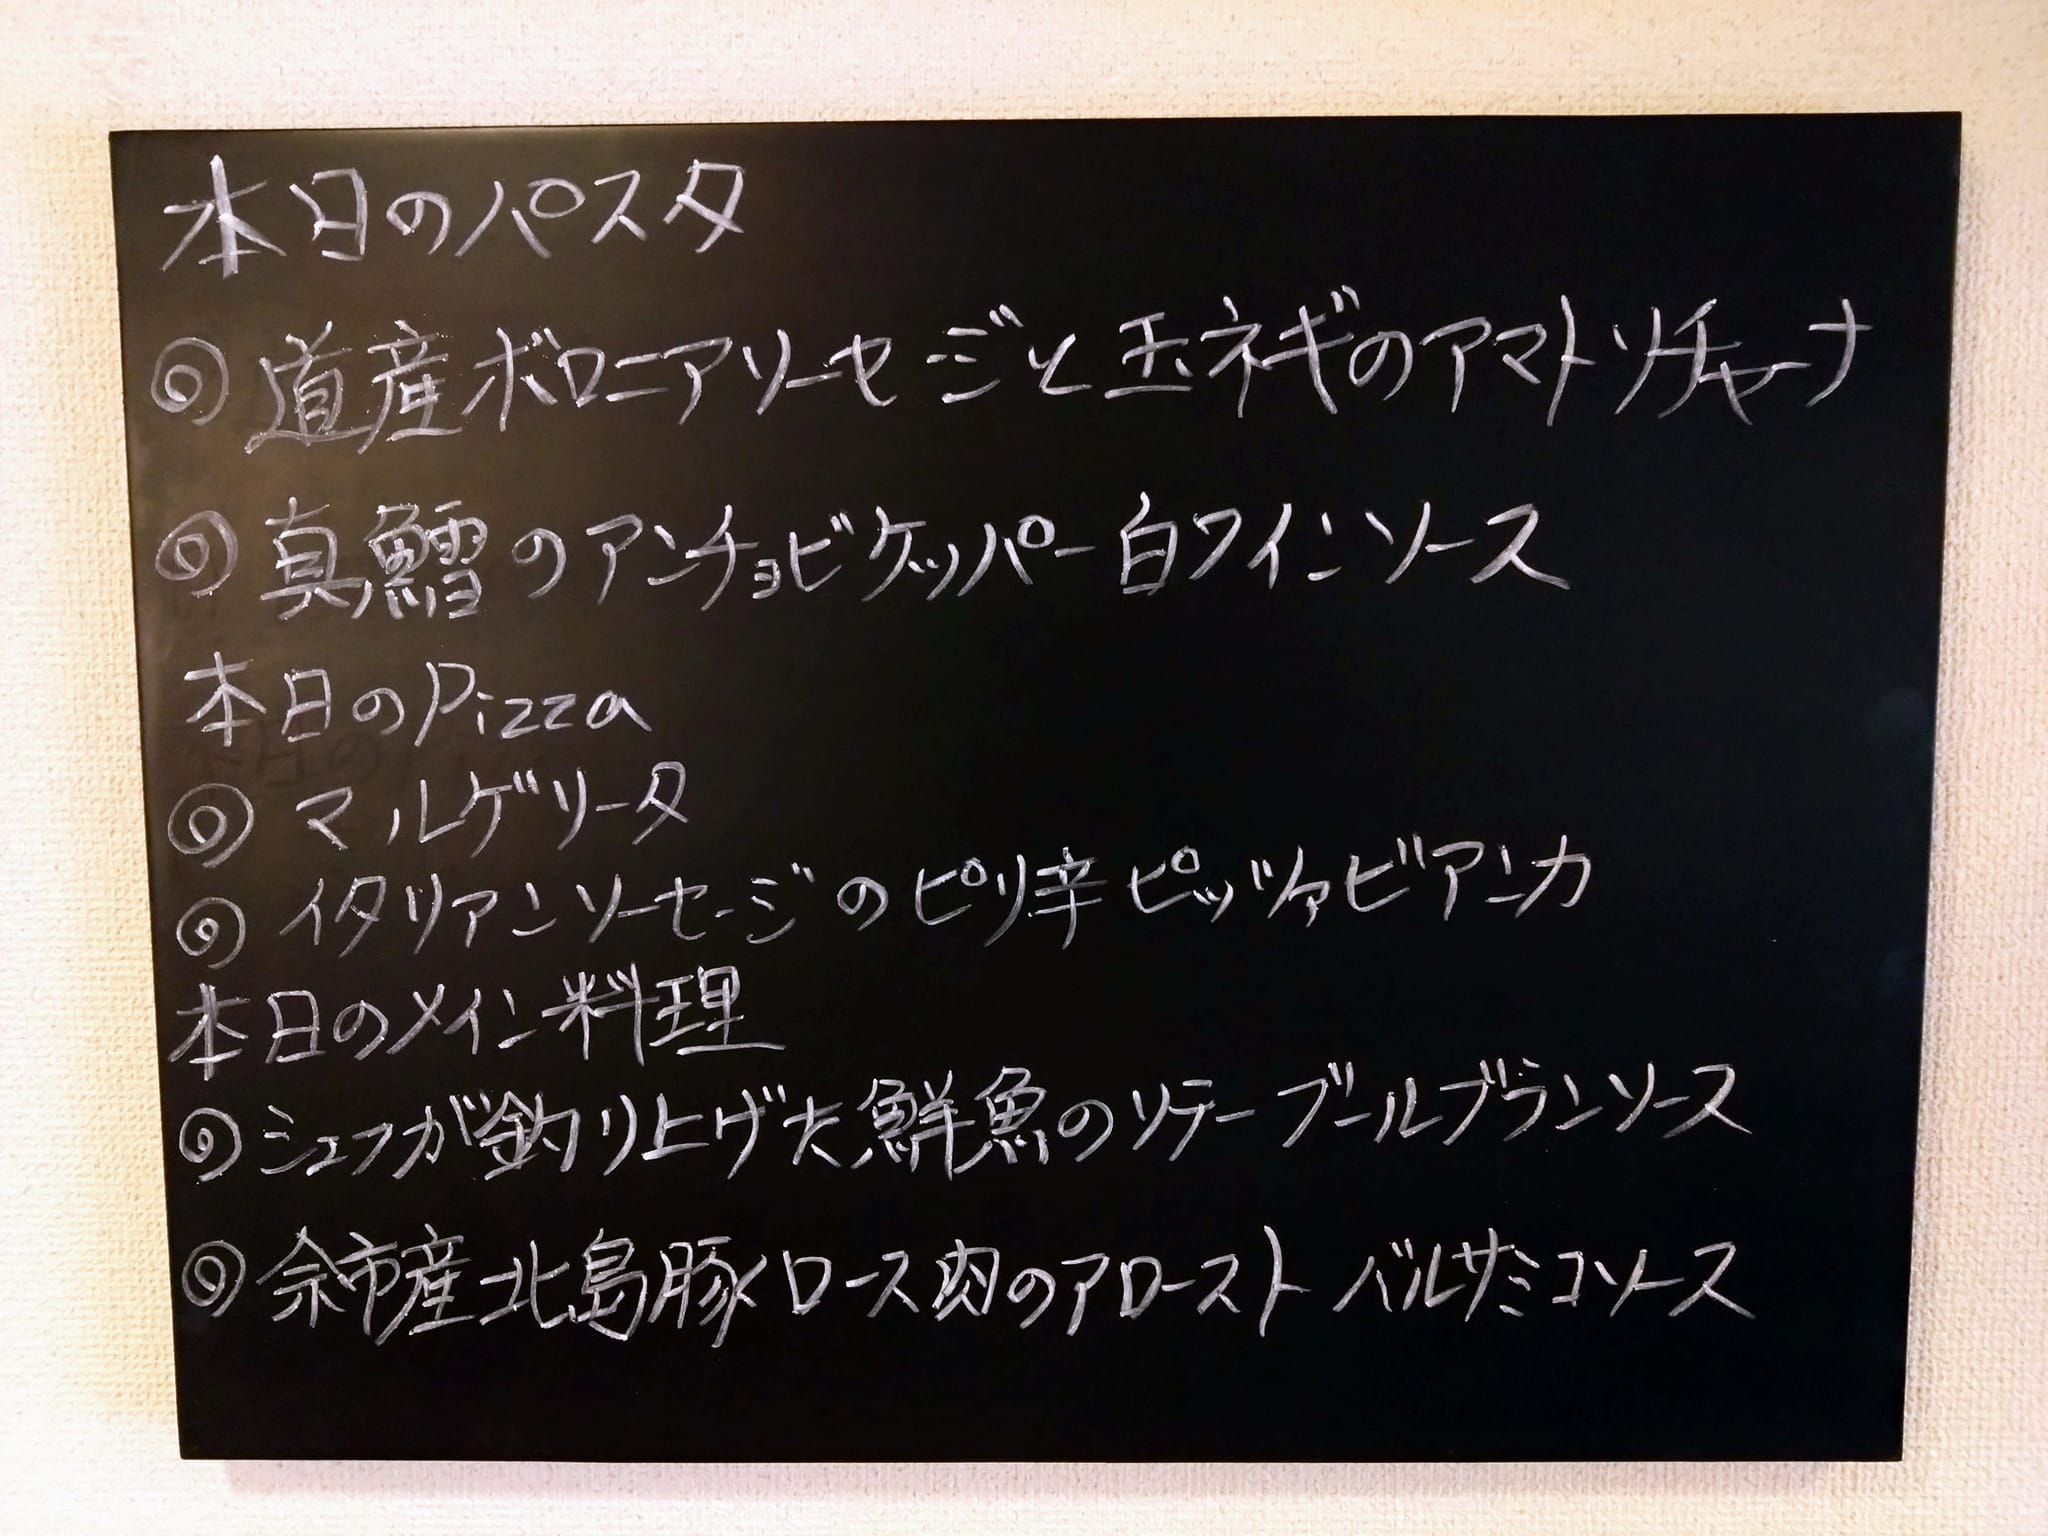 本日のパスタ
◎道産ボロニアソーセージと玉ネギのアマトリチャーナ
◎真鱈のアンチョビケッパー白ワインソース
本日のPizza
◎マルゲリータ
◎イタリアンソーセージのピリ辛ピッツァビアンカ
本日のメイン料理
◎シェフが釣り上げ大鮮魚のソテーブールブランソース
◎余市産北島豚ロース肉のアロースト バルサミコソース